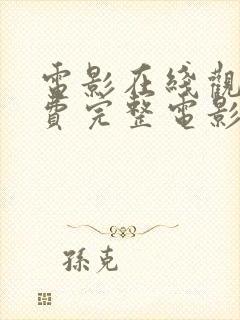 電影在綫觀
費完整電影
孫克